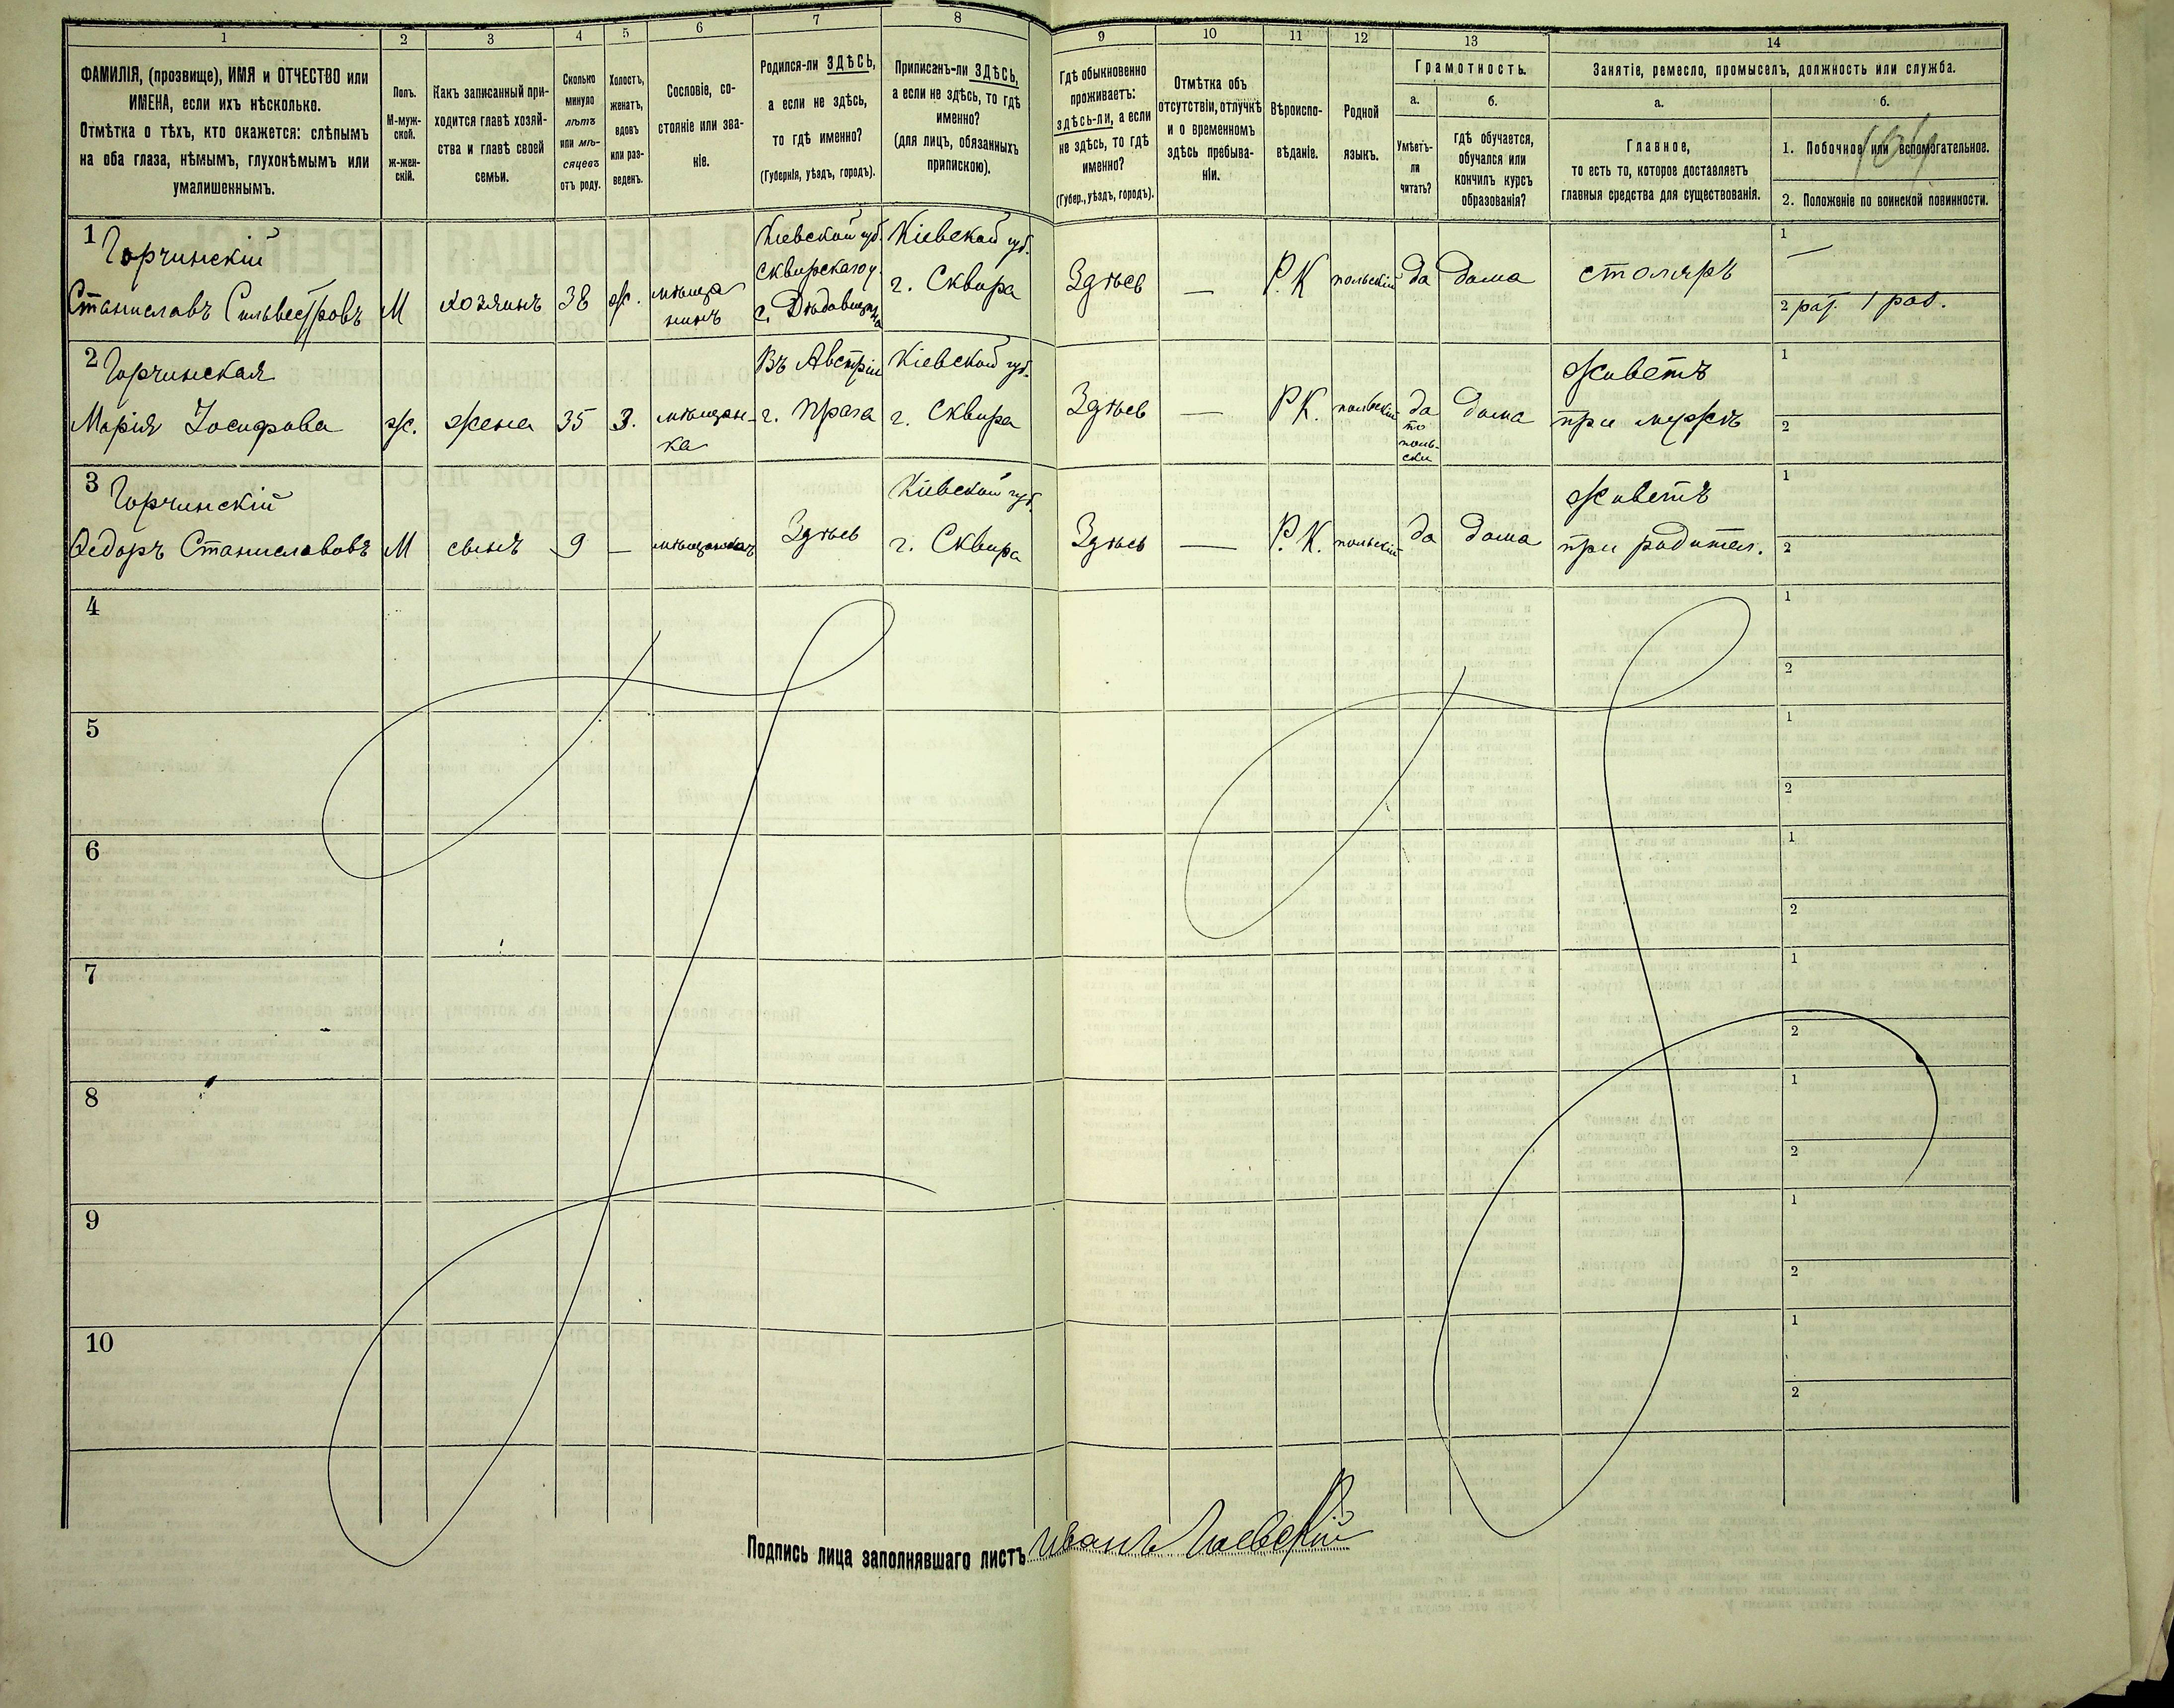 1 2 3 4 5 6 7 8 9 10 11 12 13 14
ФАМИЛІЯ, (прозвище), ИМЯ и ОТЧЕСТВО или
ИМЕНА, если ихъ нѣсколько.
Отмѣтка о тѣхъ, кто окажется: слѣпымъ
на оба глаза, нѣмымъ, глухонѣмымъ или
умалишеннымъ.
Полъ.
М-муж-
ской.
ж-жен-
скій.
Какъ записанный при-
ходится главѣ хозяй-
ства и главѣ своей
семьи.
Сколько
минуло
лѣтъ
или мѣ-
сяцевъ
отъ роду.
Холостъ,
женатъ,
вдовъ
или раз-
веденъ.
Сословіе, со-
стояніе или зва-
ніе.
Родился-ли ЗДѢСЬ,
а если не здѣсь,
то гдѣ именно?
(Губернія, уѣздъ, городъ).
Приписанъ-ли ЗДѢСЬ,
а если не здѣсь, то гдѣ
именно?
(для лицъ, обязанныхъ
припискою).
Гдѣ обыкновенно
проживаетъ:
здѣсь-ли, а если
не здѣсь, то гдѣ
именно?
(Губер., уѣздъ, городъ).
Отмѣтка объ
отсутствіи, отлучкѣ
и о временномъ
здѣсь пребыва-
ніи.
Вѣроиспо-
вѣданіе.
Родной
языкъ.
Грамотность.
а.
Умѣетъ-
ли
читать?
б.
гдѣ обучается,
обучался или
кончилъ курсъ
образованія?
Занятіе, ремесло, промыселъ, должность или служба.
а.
Главное,
то есть то, которое доставляетъ
главныя средства для существованія.
б.
1. Побочное или вспомогательное.
2. Положеніе по воинской повинности.
1 Горчинскій
Станиславъ Сильвестровъ
М
хозяинъ
38
ж.
мѣща
нинъ
Кіевской губ.
Сквирскаго у.
Кіевской губ.
г. Сквира
Здѣсь
—
Р. К
польскій
да
дома
столяръ
1 —
2 раз. 1 раз.
2 Горчинская
Марія Іосифова
ж.
жена
35
З.
мѣщан-
ка
Въ Австріи
г. Прага
Кіевской губ.
г. Сквира
Здѣсь
—
Р К.
польскій
да
по
поль-
ски
дома
живетъ
при мужѣ
1
2
3 Горчинскій
Федоръ Станиславовъ
М
сынъ
9
—
Здѣсь
Кіевской губ.
г. Сквира
Здѣсь
—
Р. К.
польскій
да
дома
живетъ
при родител.
1
2
4
1
2
5
1
2
6
1
2
7
1
2
8
1
2
9
1
2
10
1
2
Подпись лица заполнявшаго листъ Иванъ